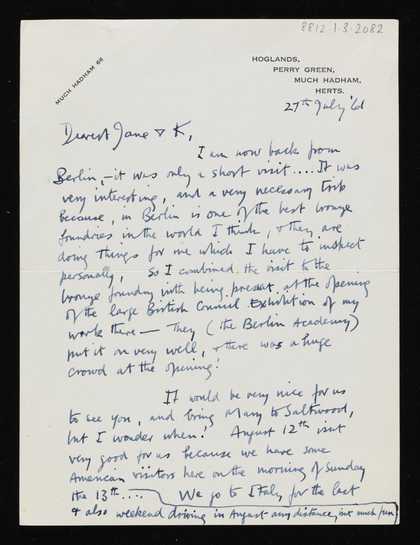 8812.1.3.2082
MUCH HADHAM 66
HOGLANDS,
PERRY GREEN,
MUCH HADHAM,
HERTS.
27th July '61
Dearest Jane & K,
I am now back from
Berlin, – it was only a short visit.... It was
very interesting, and a very necessary trip
because, in Berlin is one of the best bronze
foundries in the world I think, & they are
doing things for me which I have to inspect
personally, so I combined the visit to the
bronze foundry with being present at the opening
of the large British Council Exhibition of my
work there — They (the Berlin Academy)
put it on very well, & there was a huge
crowd at the opening!
It would be very nice for us
to see you, and bring Mary to Saltwood,
but I wonder when! August 12th isnt
very good for us because we have some
American visitors here on the morning of Sunday
the 13th.... We go to Italy for the last
& also weekend driving in August any distance, isnt much fun